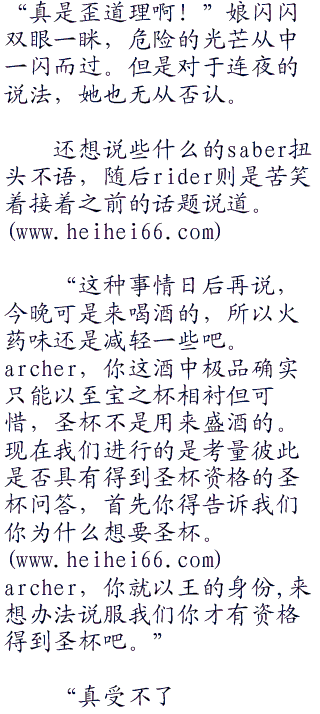 “真是歪道理啊！”娘闪闪
双眼一眯，危险的光芒从中
一闪而过。但是对于连夜的
说法，她也无从否认。
还想说些什么的saber扭
头不语，随后rider则是苦笑
着接着之前的话题说道。
(www.heihei66.com)
“这种事情日后再说，
今晚可是来喝酒的，所以火
药味还是减轻一些吧。
archer，你这酒中极品确实
只能以至宝之杯相衬但可
惜，圣杯不是用来盛酒的。
现在我们进行的是考量彼此
是否具有得到圣杯资格的圣
杯问答，首先你得告诉我们
你为什么想要圣杯。
(www.heihei66.com)
archer，你就以王的身份,来
想办法说服我们你才有资格
得到圣杯吧。”
“真受不了